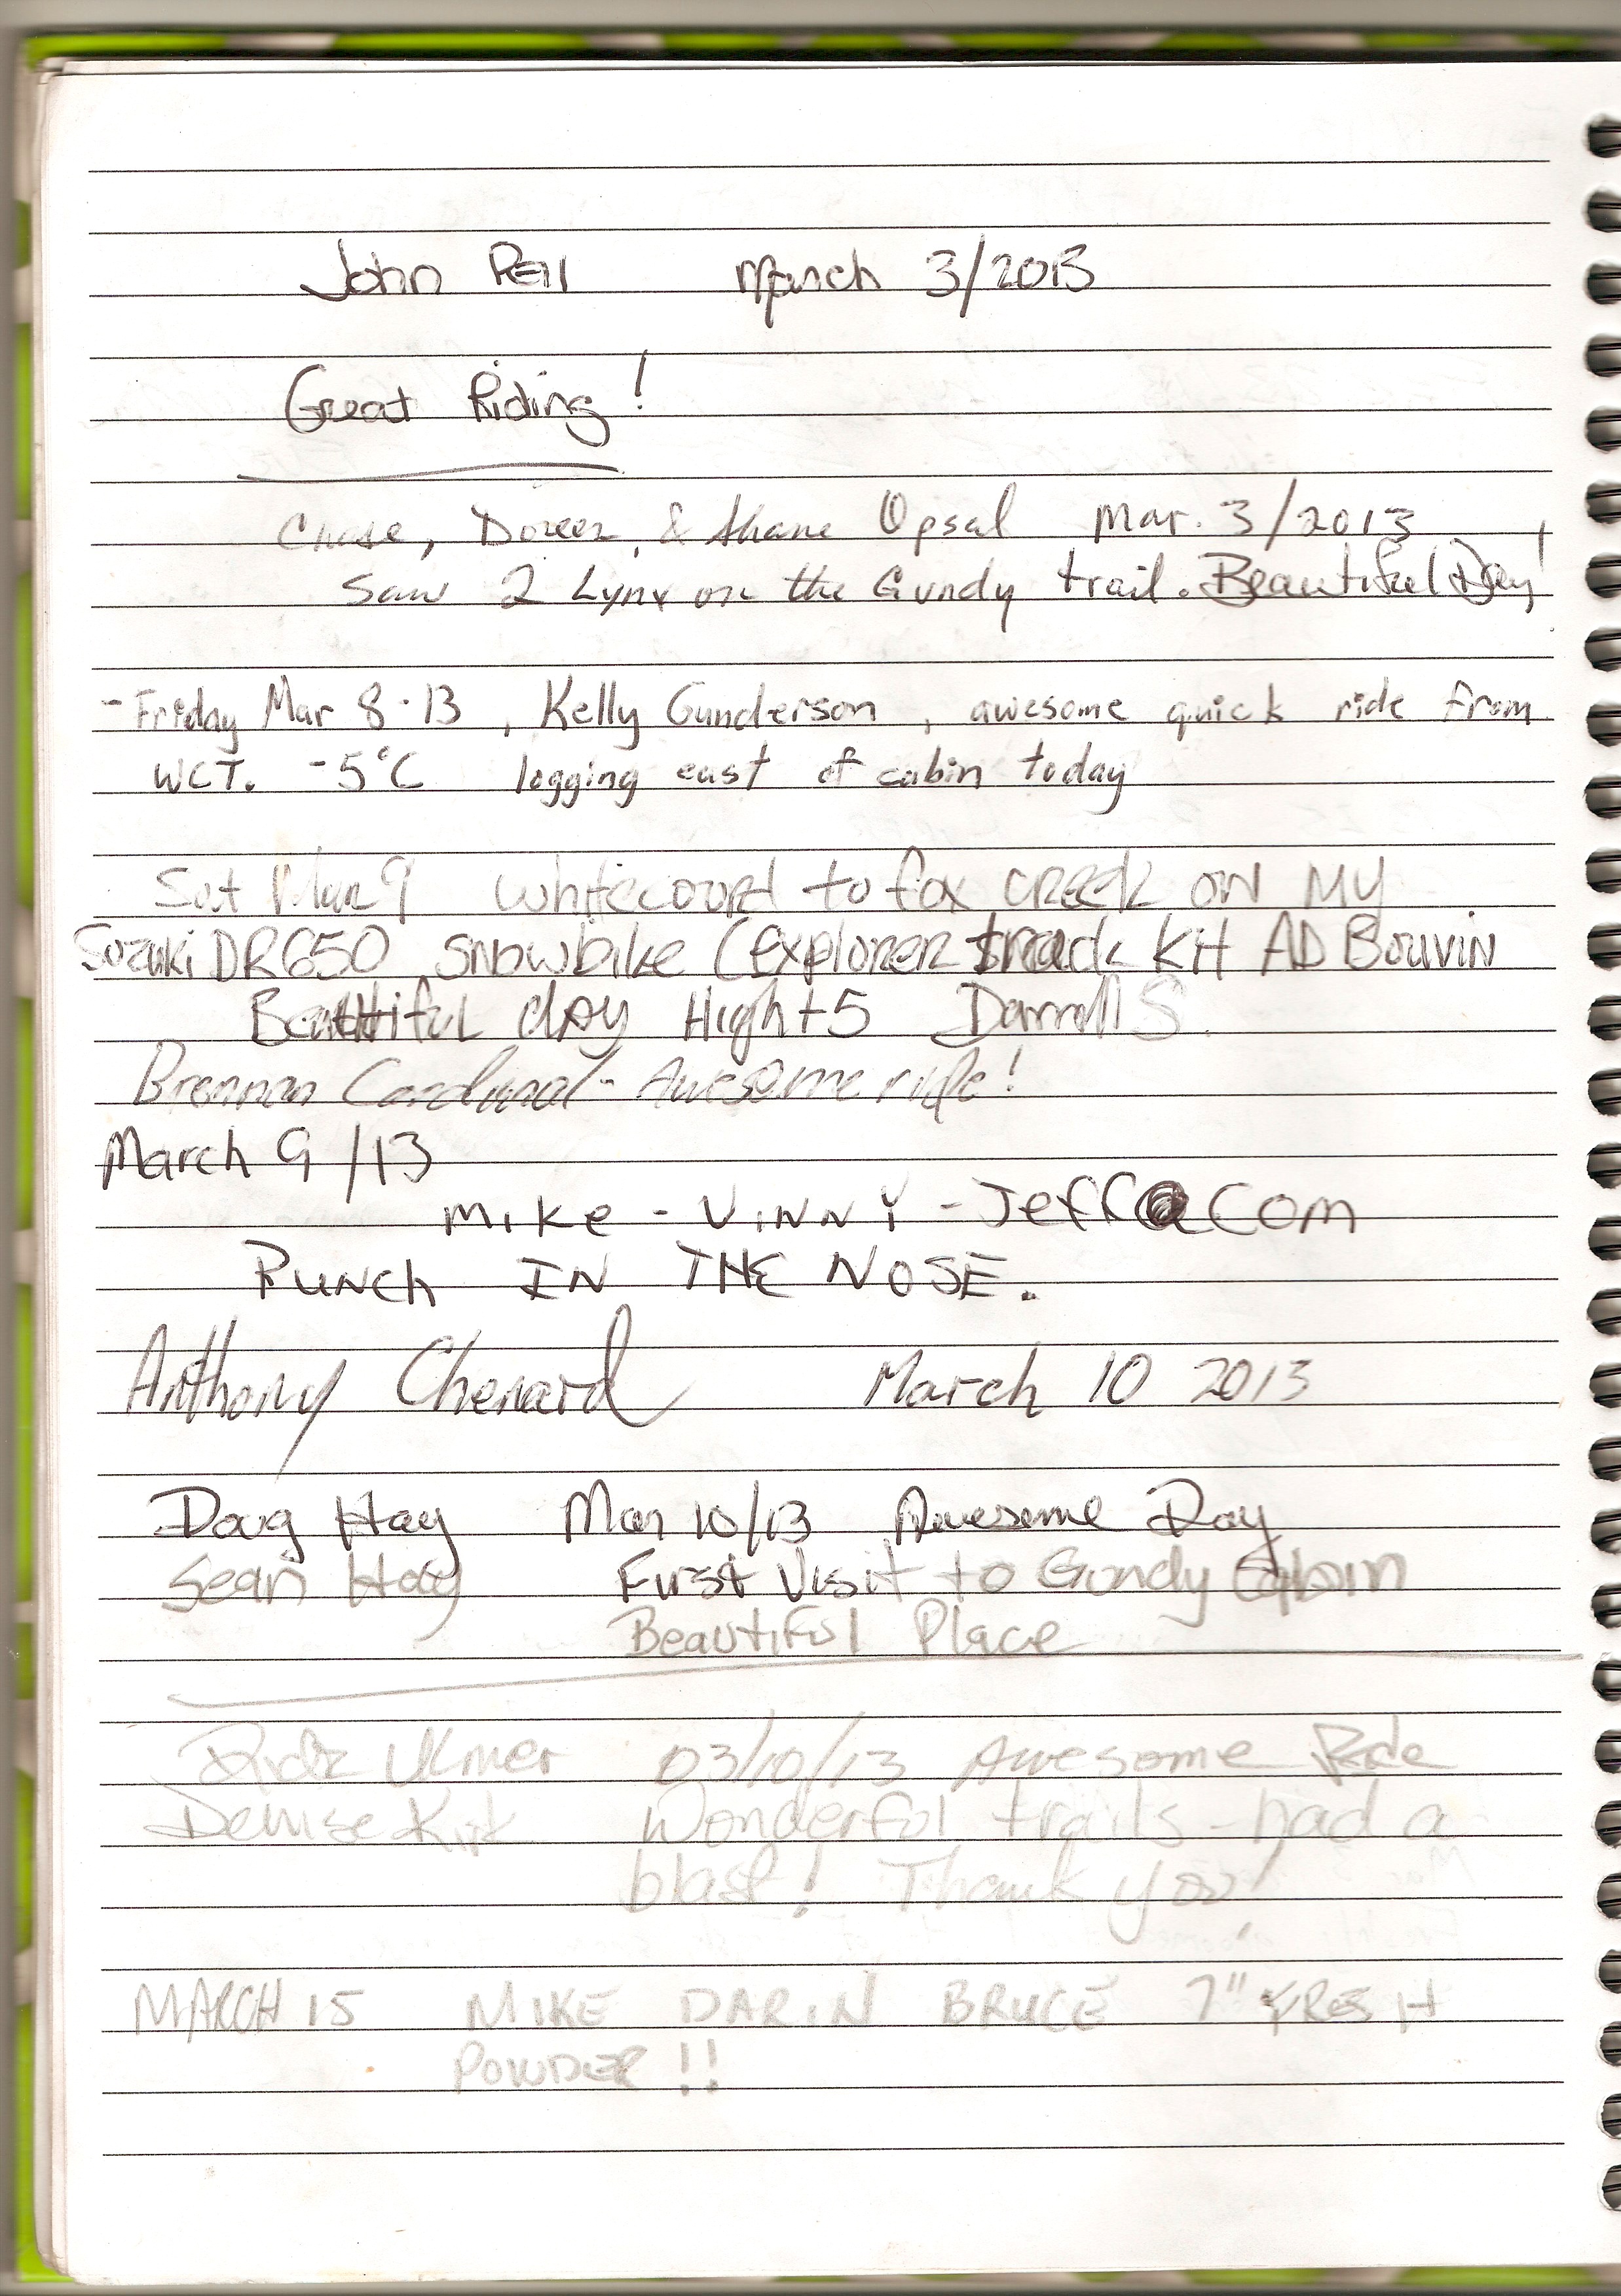 John Rell March 3/2013
Great Riding!
Chase, Doreen, & Shane Opsal Mar. 3/2013
Saw 2 Lynx on the Gundy trail. Beautiful Day!
- Friday Mar 8·13, Kelly Gunderson, awesome quick ride from
WCT. -5°C logging east of cabin today
Sat Mar 9 Whitecourt to fox creek on my
Suzuki DR650 snowbike (Explorer track kit AD Bouvin
Beautiful day High +5 Darrell S.
Brennan Cardinal - Awesome ride!
March 9/13
Mike - Vinny - Jeff@Com
Punch IN THE NOSE.
Anthony Chenard March 10 2013
Doug Hay Mar 10/13 Awesome Day
Sean Hay First Visit to Gundy Cabin
Beautiful Place
Ulmer 03/10/13 Awesome Ride
Denise Kirk Wonderful trails - had a
blast! Thank you!
MARCH 15 MIKE DARIN BRUCE 7" FRESH
POWDER!!